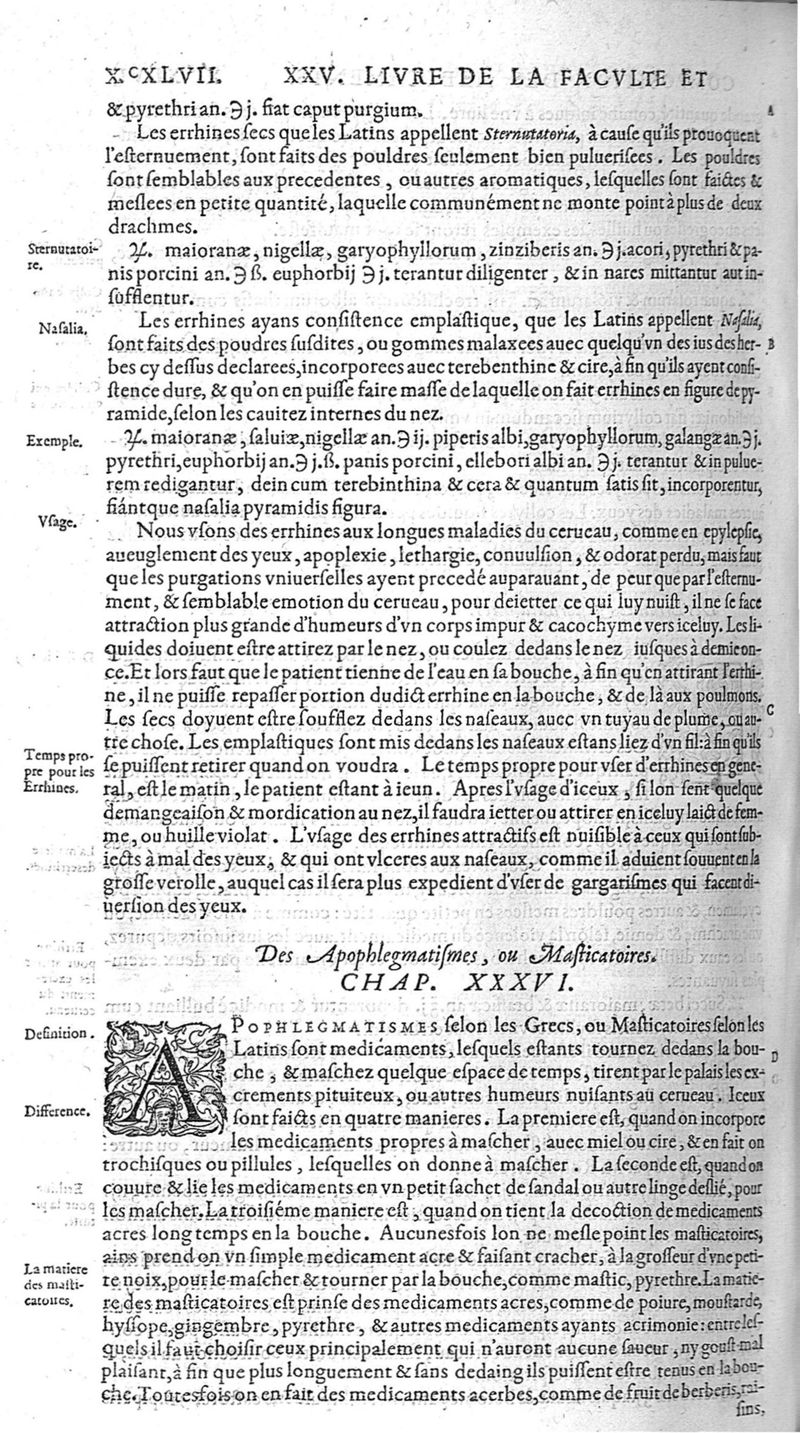 XᶜXLVII. XXV. LIVRE DE LA FACVLTE ET
& pyrethri an. ℈ j. fiat caput purgium.
Les errhines secs que les Latins appellent Sternutatoria, à cause qu'ils prouoquent
l'esternuement, sont faits des pouldres seulement bien puluerisees. Les pouldres
sont semblables aux precedentes, ou autres aromatiques, lesquelles sont faictes &
meslees en petite quantité, laquelle communément ne monte point à plus de deux
drachmes.
Sternutatoi-
re.
℞. maioranæ, nigellæ, garyophyllorum, zinziberis an. ℈ j. acori, pyrethri & pa-
nis porcini an. ℈ ß. euphorbij ℈ j. terantur diligenter, & in nares mittantur aut in-
sufflentur.
Nasalia.
Les errhines ayans consistence emplastique, que les Latins appellent Nasalia,
sont faits des poudres susdites, ou gommes malaxees auec quelqu'vn des ius des her-
B
bes cy dessus declarees, incorporees auec terebenthine & cire, à fin qu'ils ayent consi-
stence dure, & qu'on en puisse faire masse de laquelle on fait errhines en figure de py-
ramide, selon les cauitez internes du nez.
Exemple.
℞. maioranæ, saluiæ, nigellæ an. ℈ ij. piperis albi, garyophyllorum, galangæ an. ℈ j.
pyrethri, euphorbij an. ℈ j. ß. panis porcini, ellebori albi an. ℈ j. terantur & in pulue-
rem redigantur, dein cum terebinthina & cera & quantum satis sit, incorporentur,
fiántque nasalia pyramidis figura.
Vsage.
Nous vsons des errhines aux longues maladies du cerueau, comme en epylepsie,
aueuglement des yeux, apoplexie, lethargie, conuulsion, & odorat perdu, mais faut
que les purgations vniuerselles ayent precedé auparauant, de peur que par l'esternu-
ment, & semblable emotion du cerueau, pour deietter ce qui luy nuist, il ne se face
attraction plus grande d'humeurs d'vn corps impur & cacochyme vers iceluy. Les li-
quides doiuent estre attirez par le nez, ou coulez dedans le nez iusques à demie on-
ce. Et lors faut que le patient tienne de l'eau en sa bouche, à fin qu'en attirant l'errhi-
ne, il ne puisse repasser portion dudict errhine en la bouche, & de là aux poulmons.
C
Les secs doyuent estre soufflez dedans les naseaux, auec vn tuyau de plume, ou au-
tre chose. Les emplastiques sont mis dedans les naseaux estans liez d'vn fil: à fin qu'ils
Temps pro-
pre pour les
Errhines.
se puissent retirer quand on voudra. Le temps propre pour vser d'errhines en gene-
ral, est le matin, le patient estant à ieun. Apres l'vsage d'iceux, si lon sent quelque
demangeaison & mordication au nez, il faudra ietter ou attirer en iceluy laict de fem-
me, ou huille violat. L'vsage des errhines attractifs est nuisible à ceux qui sont sub-
iects à mal des yeux, & qui ont vlceres aux naseaux, comme il aduient souuent en la
grosse verolle, auquel cas il sera plus expedient d'vser de gargarismes qui facent di-
uersion des yeux.
Des Apophlegmatismes, ou Masticatoires.
CHAP. XXXVI.
Definition.
APOPHLEGMATISMES selon les Grecs, ou Masticatoires selon les
Latins sont medicaments, lesquels estants tournez dedans la bou-
D
che, & maschez quelque espace de temps, tirent par le palais les ex-
crements pituiteux, ou autres humeurs nuisants au cerueau. Iceux
Difference.
sont faicts en quatre manieres. La premiere est, quand on incorpore
les medicaments propres à mascher, auec miel ou cire, & en fait on
trochisques ou pillules, lesquelles on donne à mascher. La seconde est, quand on
couure & lie les medicaments en vn petit sachet de sandal ou autre linge deslié, pour
les mascher. La troisiéme maniere est, quand on tient la decoction de medicaments
acres long temps en la bouche. Aucunesfois lon ne mesle point les masticatoires,
ains prend on vn simple medicament acre & faisant cracher, à la grosseur d'vne peti-
La matiere
des masti-
catoires.
te noix, pour le mascher & tourner par la bouche, comme mastic, pyrethre. La matie-
re des masticatoires est prinse des medicaments acres, comme de poiure, moustarde,
hyssope, gingembre, pyrethre, & autres medicaments ayants acrimonie: entre les-
quels il faut choisir ceux principalement qui n'auront aucune saueur, ny goust mal
plaisant, à fin que plus longuement & sans dedaing ils puissent estre tenus en la bou-
che. Toutesfois on en fait des medicaments acerbes, comme de fruit de berberis, rai-
sins,